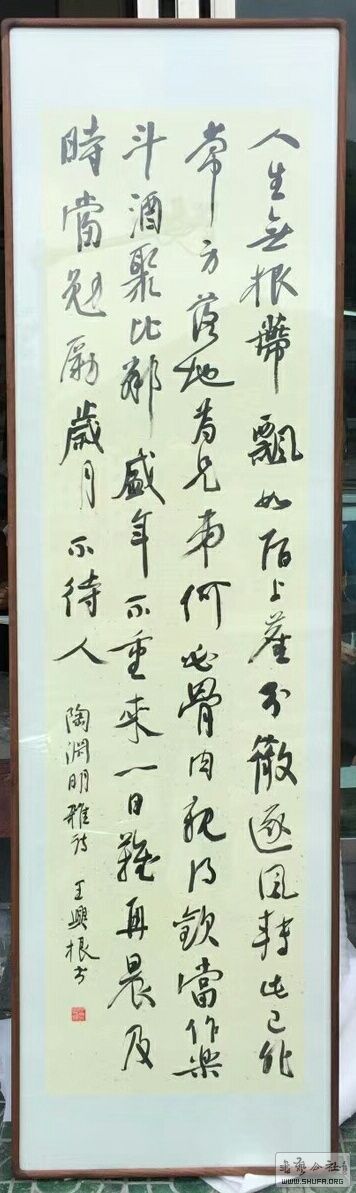 人生無根蒂飄如陌上塵分散逐風轉此已非
常身落地為兄弟何必骨肉親得歡當作樂
斗酒聚比鄰盛年不重來一日難再晨及
時當勉勵歲月不待人
陶淵明雅詩 王興根書
書藝公社
WWW.SHUFA.ORG